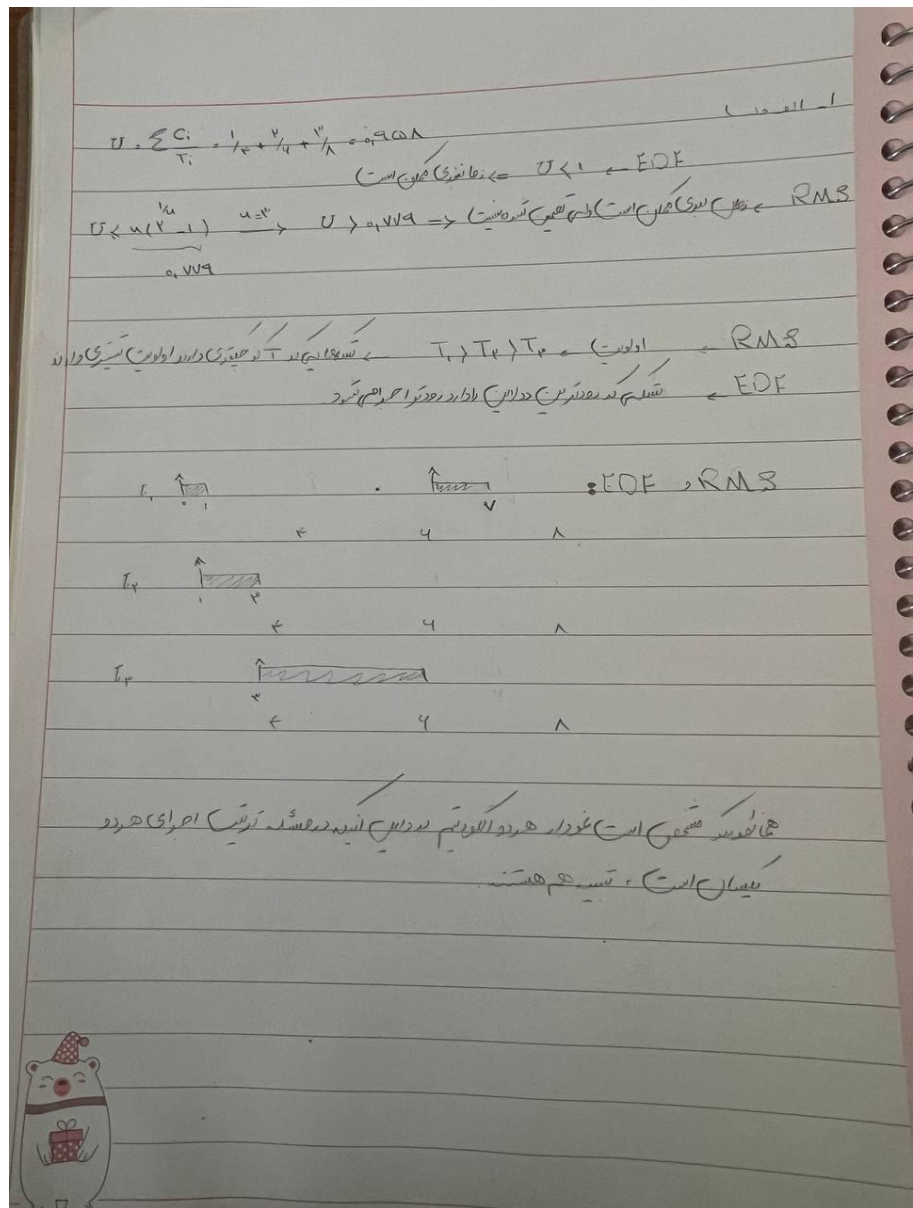 ۱ـ الف
U = Σ Ci/Ti = ۱/۴ + ۲/۶ + ۳/۸ = ۰,۹۵۸
EDF ← U < ۱ => زمانبندی ممکن است
RMS ← زمان بندی ممکن است ولی تضمین شده نیست <= U > ۰,۷۷۹ <— n=۳ U < n(۲^۱/n − ۱)
۰,۷۷۹
RMS ← اولویت = T۱ > T۲ > T۳ ← تسک هایی که T کوچکتری دارند اولویت بیشتری دارند
EDF ← تسکی که زودترین ددلاین را دارد زودتر اجرا می شود
RMS و EDF :
T۱ ۰ ۱ ۷
۴ ۶ ۸
T۲ ۱ ۳
۴ ۶ ۸
T۳ ۳
۴ ۶ ۸
همانطور که مشخص است نمودار هر دو الگوریتم به دلیل اینکه ترتیب اجرای هر دو
یکسان است ، شبیه هم هستند.